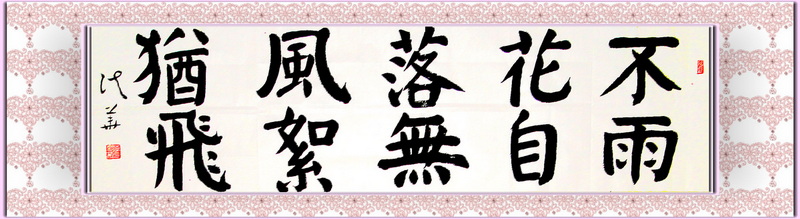 不雨
花自
落無
風絮
猶飛